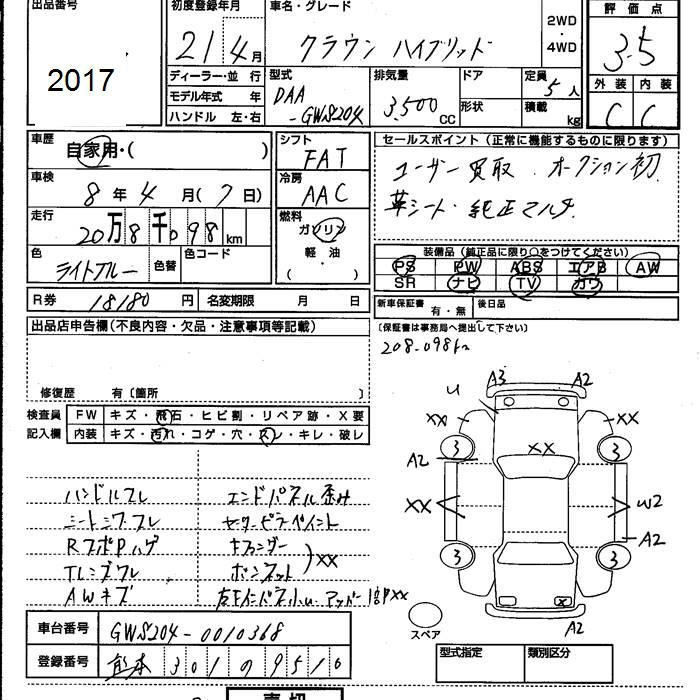 出品番号
2017
初度登録年月
21 4月
車名・グレード
クラウン ハイブリッド
2WD
・
4WD
評価点
3.5
外装 内装
C C
ディーラー・並行
モデル年式 年
ハンドル 左・右
型式
DAA
-GWS204
排気量
3,500cc
ドア
形状
定員
5人
積載
kg
車歴
自家用・( )
車検
8年4月(7日)
走行
20万8千098km
色
ライトブルー
色替
色コード
シフト
FAT
冷房
AAC
燃料
ガソリン
軽・油
( ・ )
セールスポイント(正常に機能するものに限ります)
ユーザー買取 オークション初
革シート・純正マルチ
装備品(純正品に限り○をつけてください)
PS PW ABS エアB AW
SR ナビ TV カワ
R券 18180円
名変期限 月 日
新車保証書 有・無
後日品
(保証書は事務局へ提出して下さい)
208.098km
出品店申告欄(不良内容・欠品・注意事項等記載)
修復歴 有〔箇所 〕
検査員
記入欄
FW キズ・飛石・ヒビ割・リペア跡・X要
内装 キズ・汚れ・コゲ・穴・スレ・キレ・破レ
ハンドルスレ
シートシワスレ
RスポPハゲ
Tレンズワレ
AWキズ
エンドパネル歪み
センターピラーペイント
Fフェンダー
ボンネット
)XX
U A3 A2
XX XX
3 XX 3
A2
XX W2
A2
3 3
X
A2
スペア
車台番号 GWS204-0010368
登録番号 熊本 301 の 9510
型式指定 類別区分